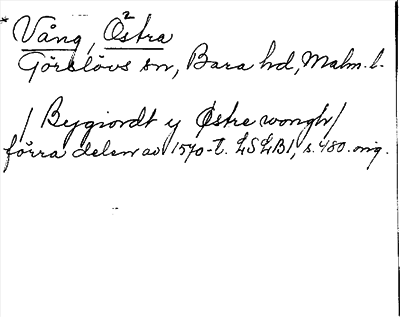 * Vång, Östra 2
Görslövs sn, Bara hd, Malm. l.
/ Bygiordt y Østre wongh/
förra delen av 1570-t. LSLB1, s. 480. orig.